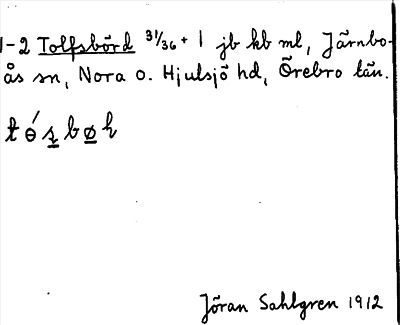 1-2 Tolfsbörd 31/36 + 1 jb kb ml, Järnbo-
ås sn, Nora o. Hjulsjö hd, Örebro län.
Jöran Sahlgren 1912